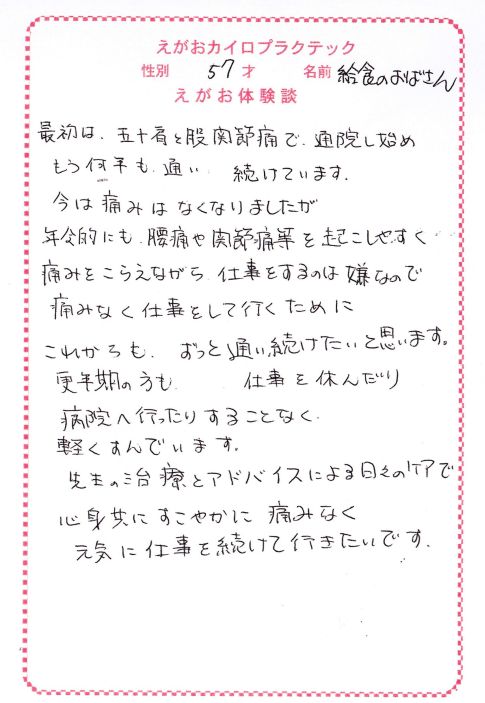 えがおカイロプラクテック
性別 57才 名前 給食のおばさん
えがお体験談
最初は、五十肩と股関節痛で、通院し始め
もう何年も、通い 続けています。
今は痛みはなくなりましたが
年令的にも、腰痛や関節痛等を起こしやすく
痛みをこらえながら、仕事をするのは嫌なので
痛みなく仕事をして行くために
これからも、ずっと通い続けたいと思います。
更年期の方も、 仕事を休んだり
病院へ行ったりすることなく、
軽くすんでいます。
先生の治療とアドバイスによる日々のケアで
心身共にすこやかに 痛みなく
元気に仕事を続けて行きたいです。